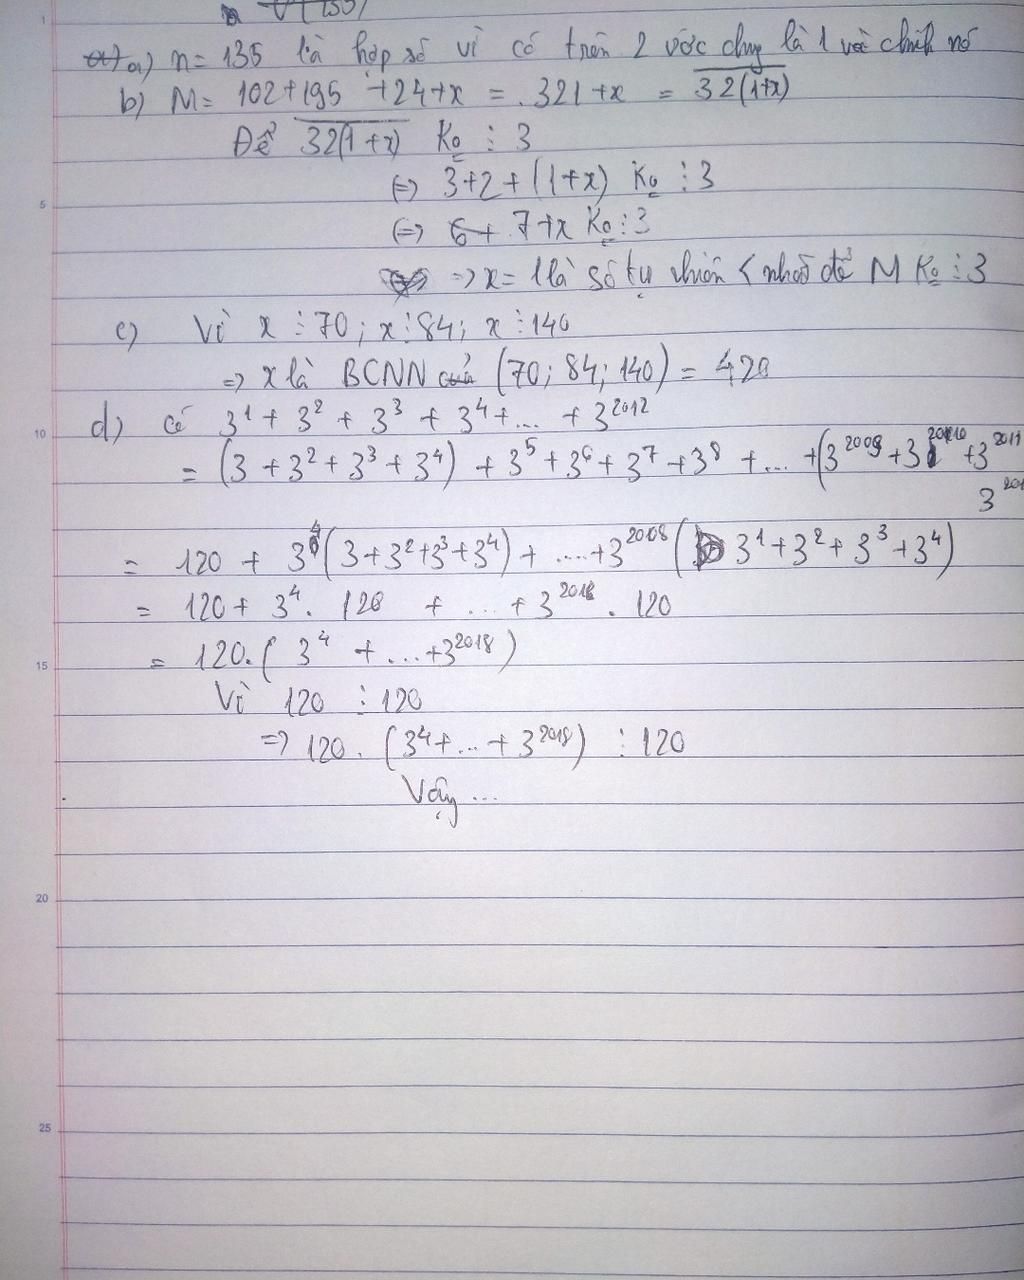 a) n = 135 là hợp số vì có trên 2 ước chung là 1 và chính nó
b) M = 102 + 195 + 24 + x = 321 + x = \overline{32(1+x)}
Để \overline{32(1+x)} Ko ⋮ 3
(=) 3+2+(1+x) Ko ⋮ 3
(=) 7+x Ko ⋮ 3
=> x = 1 là số tự nhiên < nhất để M Ko ⋮ 3
c) Vì x ⋮ 70 ; x ⋮ 84 ; x ⋮ 140
=> x là BCNN (70; 84; 140) = 420
d) Có 3¹ + 3² + 3³ + 3⁴ + ... + 3²⁰¹²
= (3 + 3² + 3³ + 3⁴) + 3⁵ + 3⁶ + 3⁷ + 3⁸ + ... + (3²⁰⁰⁹ + 3²⁰¹⁰ + 3²⁰¹¹
= 120 + 3⁴ (3 + 3² + 3³ + 3⁴) + .... + 3²⁰⁰⁸ (3¹ + 3² + 3³ + 3⁴)
= 120 + 3⁴ . 120 + ... + 3²⁰¹⁸ . 120
= 120. ( 3⁴ + ... + 3²⁰¹⁸ )
Vì 120 ⋮ 120
=> 120 . (3⁴ + ... + 3²⁰¹⁸) ⋮ 120
Vậy ...
1
5
10
15
20
25